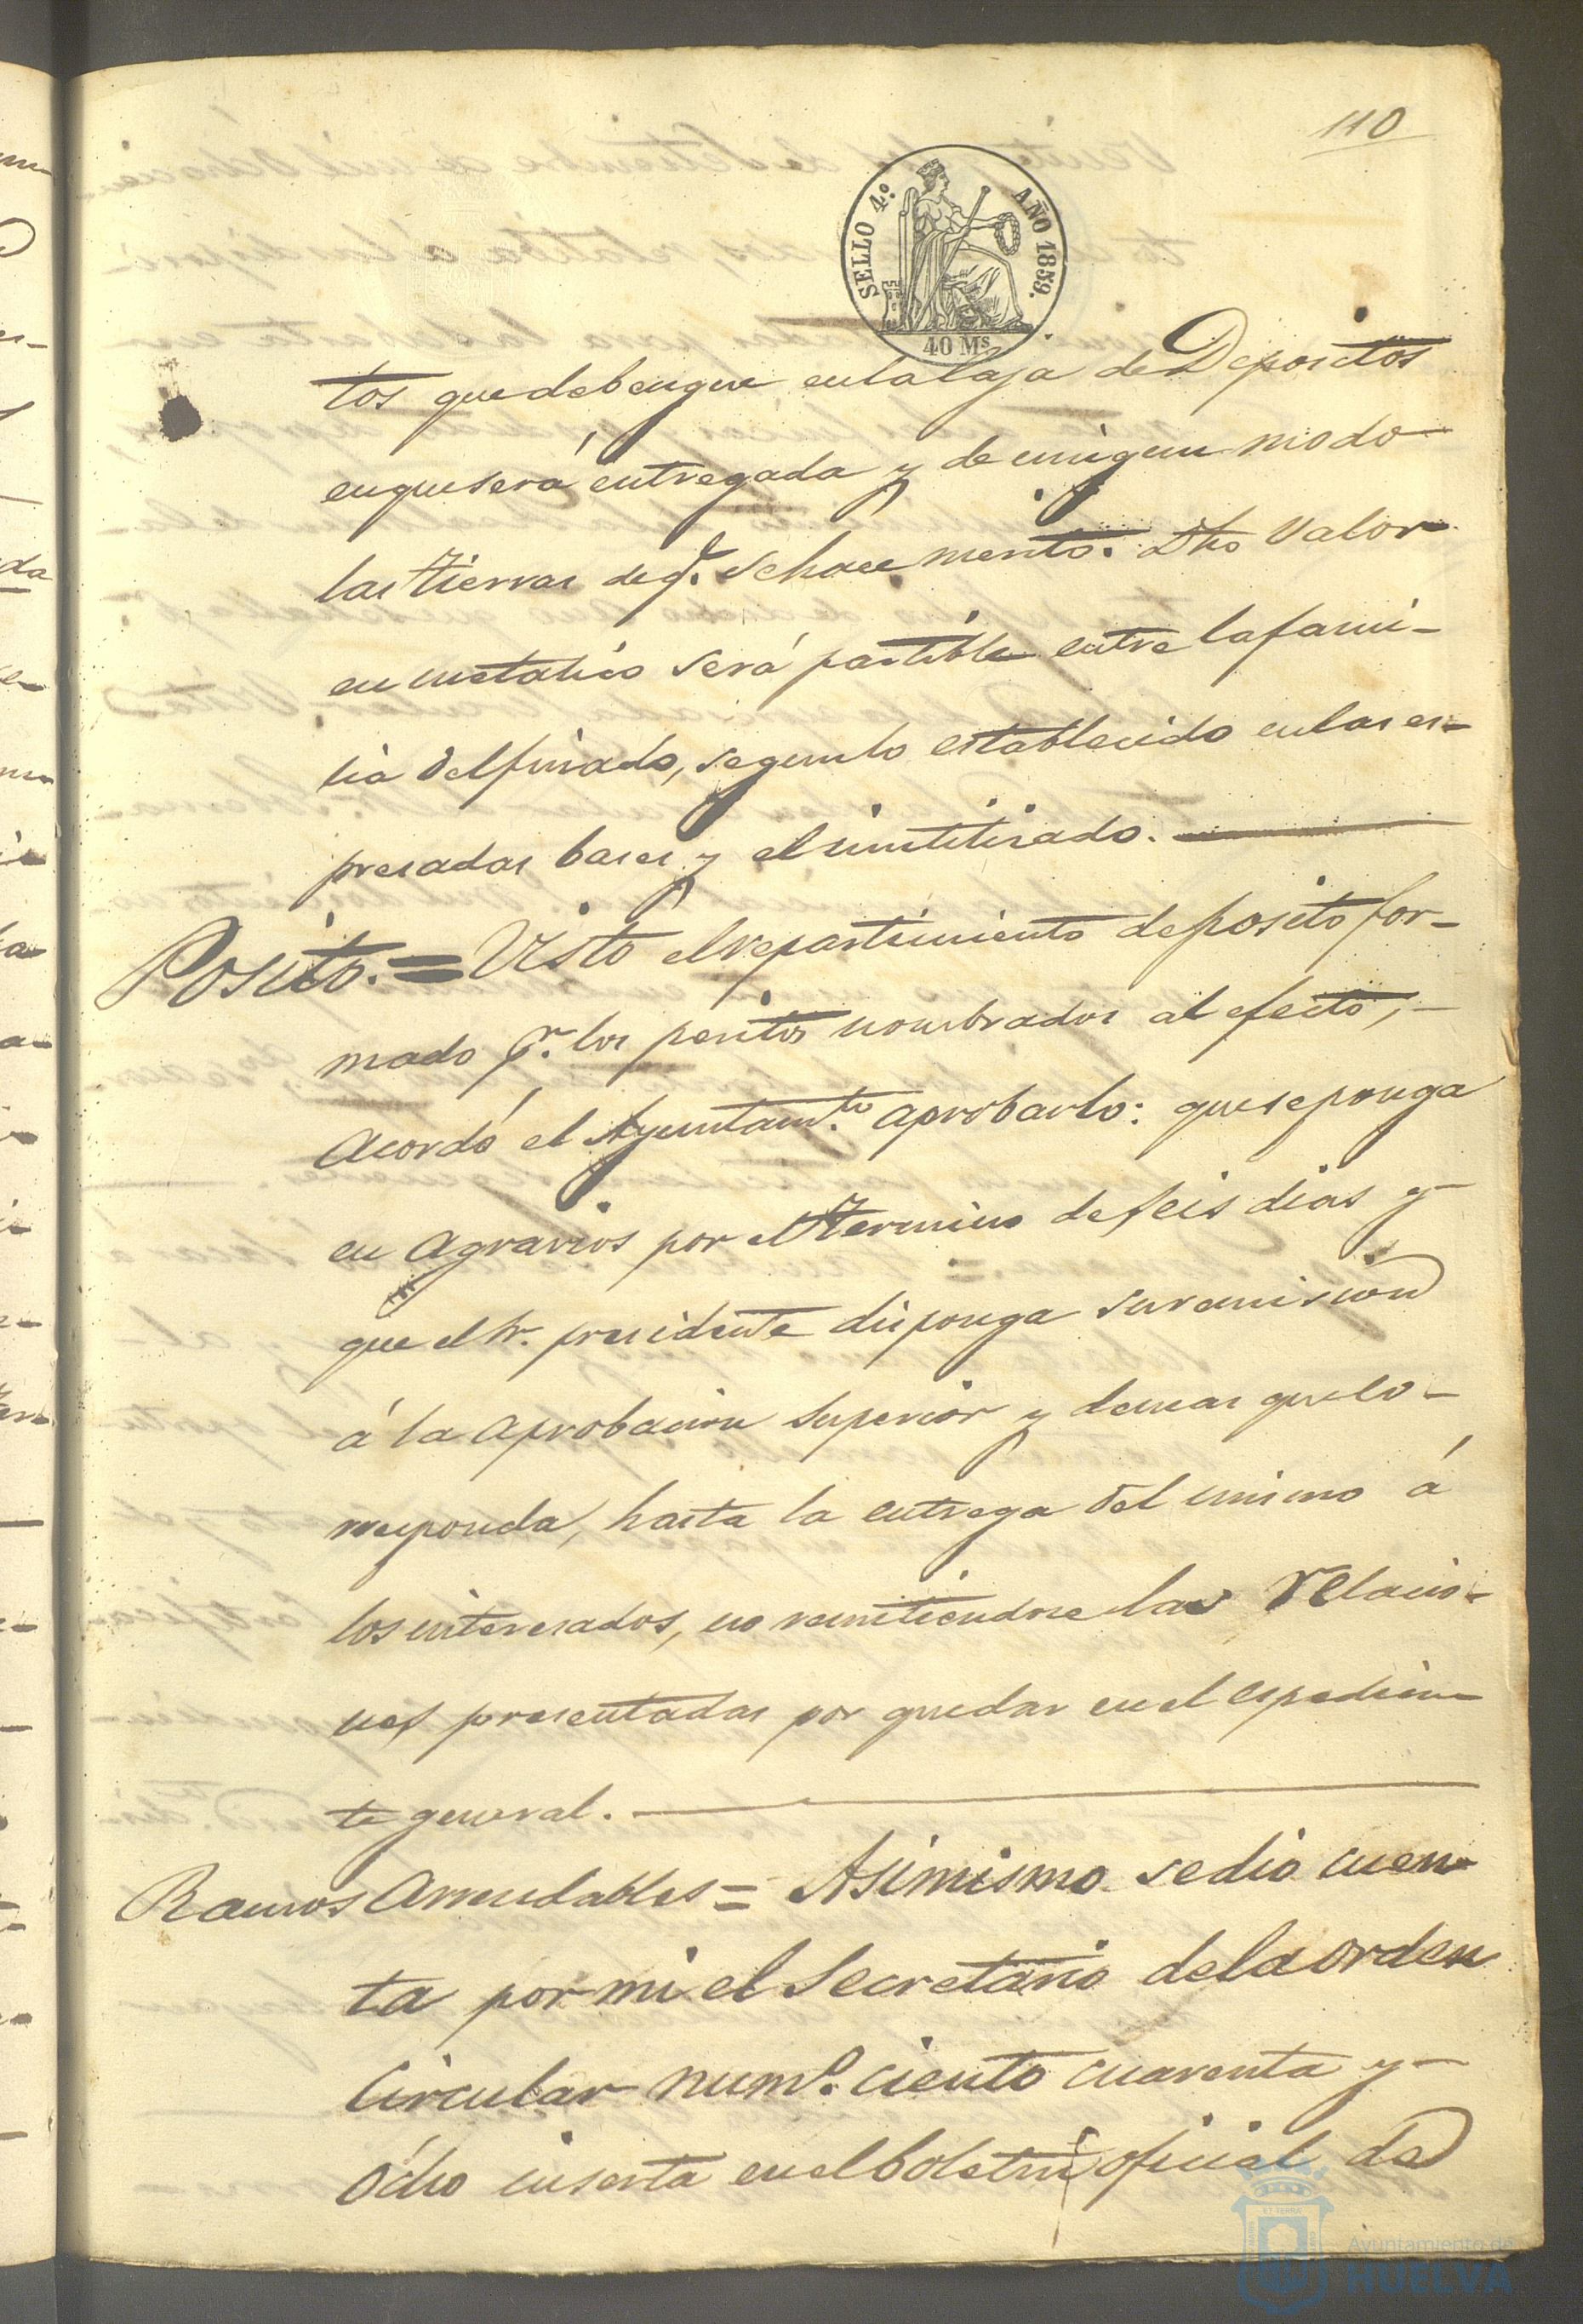 110
SELLO 4.º AÑO 1859.
40 Ms
tos que debengue en la Caja de Depositos
en que será entregada y de ningun modo
las tierras de q.e se hace merito. Dho Valor
en metalico será partible entre la fami-
lia del finado, segun lo establecido en las es-
presadas bases y el
Posito.= Visto el repartimiento de posito for-
mado p.r los peritos nombrados al efecto,-
Acordó el Ayuntam.to aprobarlo: que se ponga
en agravios por el termino de seis dias y
que el Sr. presidente disponga su remision
á la aprobacion Superior y demas que co-
rresponda, hasta la entrega del mismo á
los interesados, no remitiendose las relacio-
nes presentadas por quedar en el espedien-
te general.
Ramos Arrendables = Asimismo se dió cuen-
ta por mi el Secretario de la orden
Circular num.o ciento cuarenta y
ocho inserta en el boletin oficial de
Ayuntamiento de
HUELVA